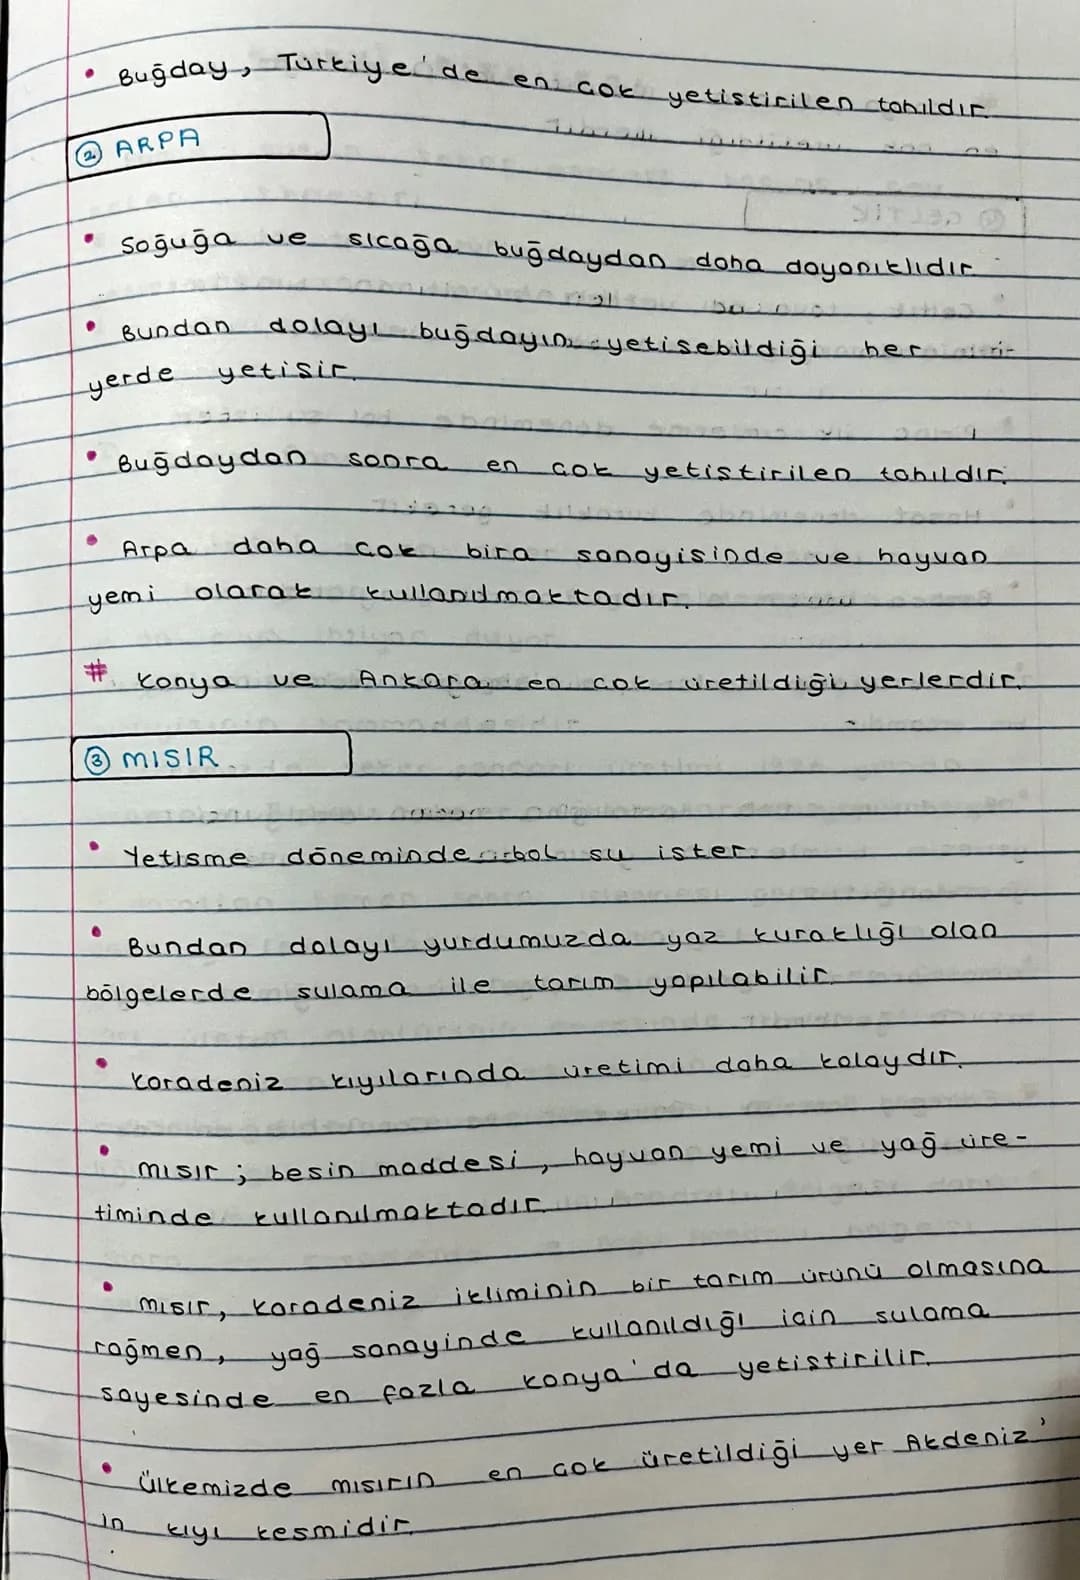 • Buğday, Türkiye'de en çok yetiştirilen tahıldır.
② ARPA
• Soğuğa ve sıcağa buğdaydan daha dayanıklıdır.
• Bundan dolayı buğdayın yetişebildiği her
yerde yetişir.
• Buğdaydan sonra en çok yetiştirilen tahıldır.
• Arpa daha çok bira sanayisinde ve hayvan
yemi olarak kullanılmaktadır.
# Konya ve Ankara en çok üretildiği yerlerdir.
③ MISIR
• Yetişme döneminde bol su ister.
• Bundan dolayı yurdumuzda yaz kuraklığı olan
bölgelerde sulama ile tarım yapılabilir.
• Karadeniz kıyılarında üretimi daha kolaydır.
• Mısır; besin maddesi, hayvan yemi ve yağ üre-
timinde kullanılmaktadır.
• Mısır, Karadeniz ikliminin bir tarım ürünü olmasına
rağmen, yağ sanayinde kullanıldığı için sulama
sayesinde en fazla Konya'da yetiştirilir.
• Ülkemizde mısırın en çok üretildiği yer Akdeniz'
in kıyı kesmidir.